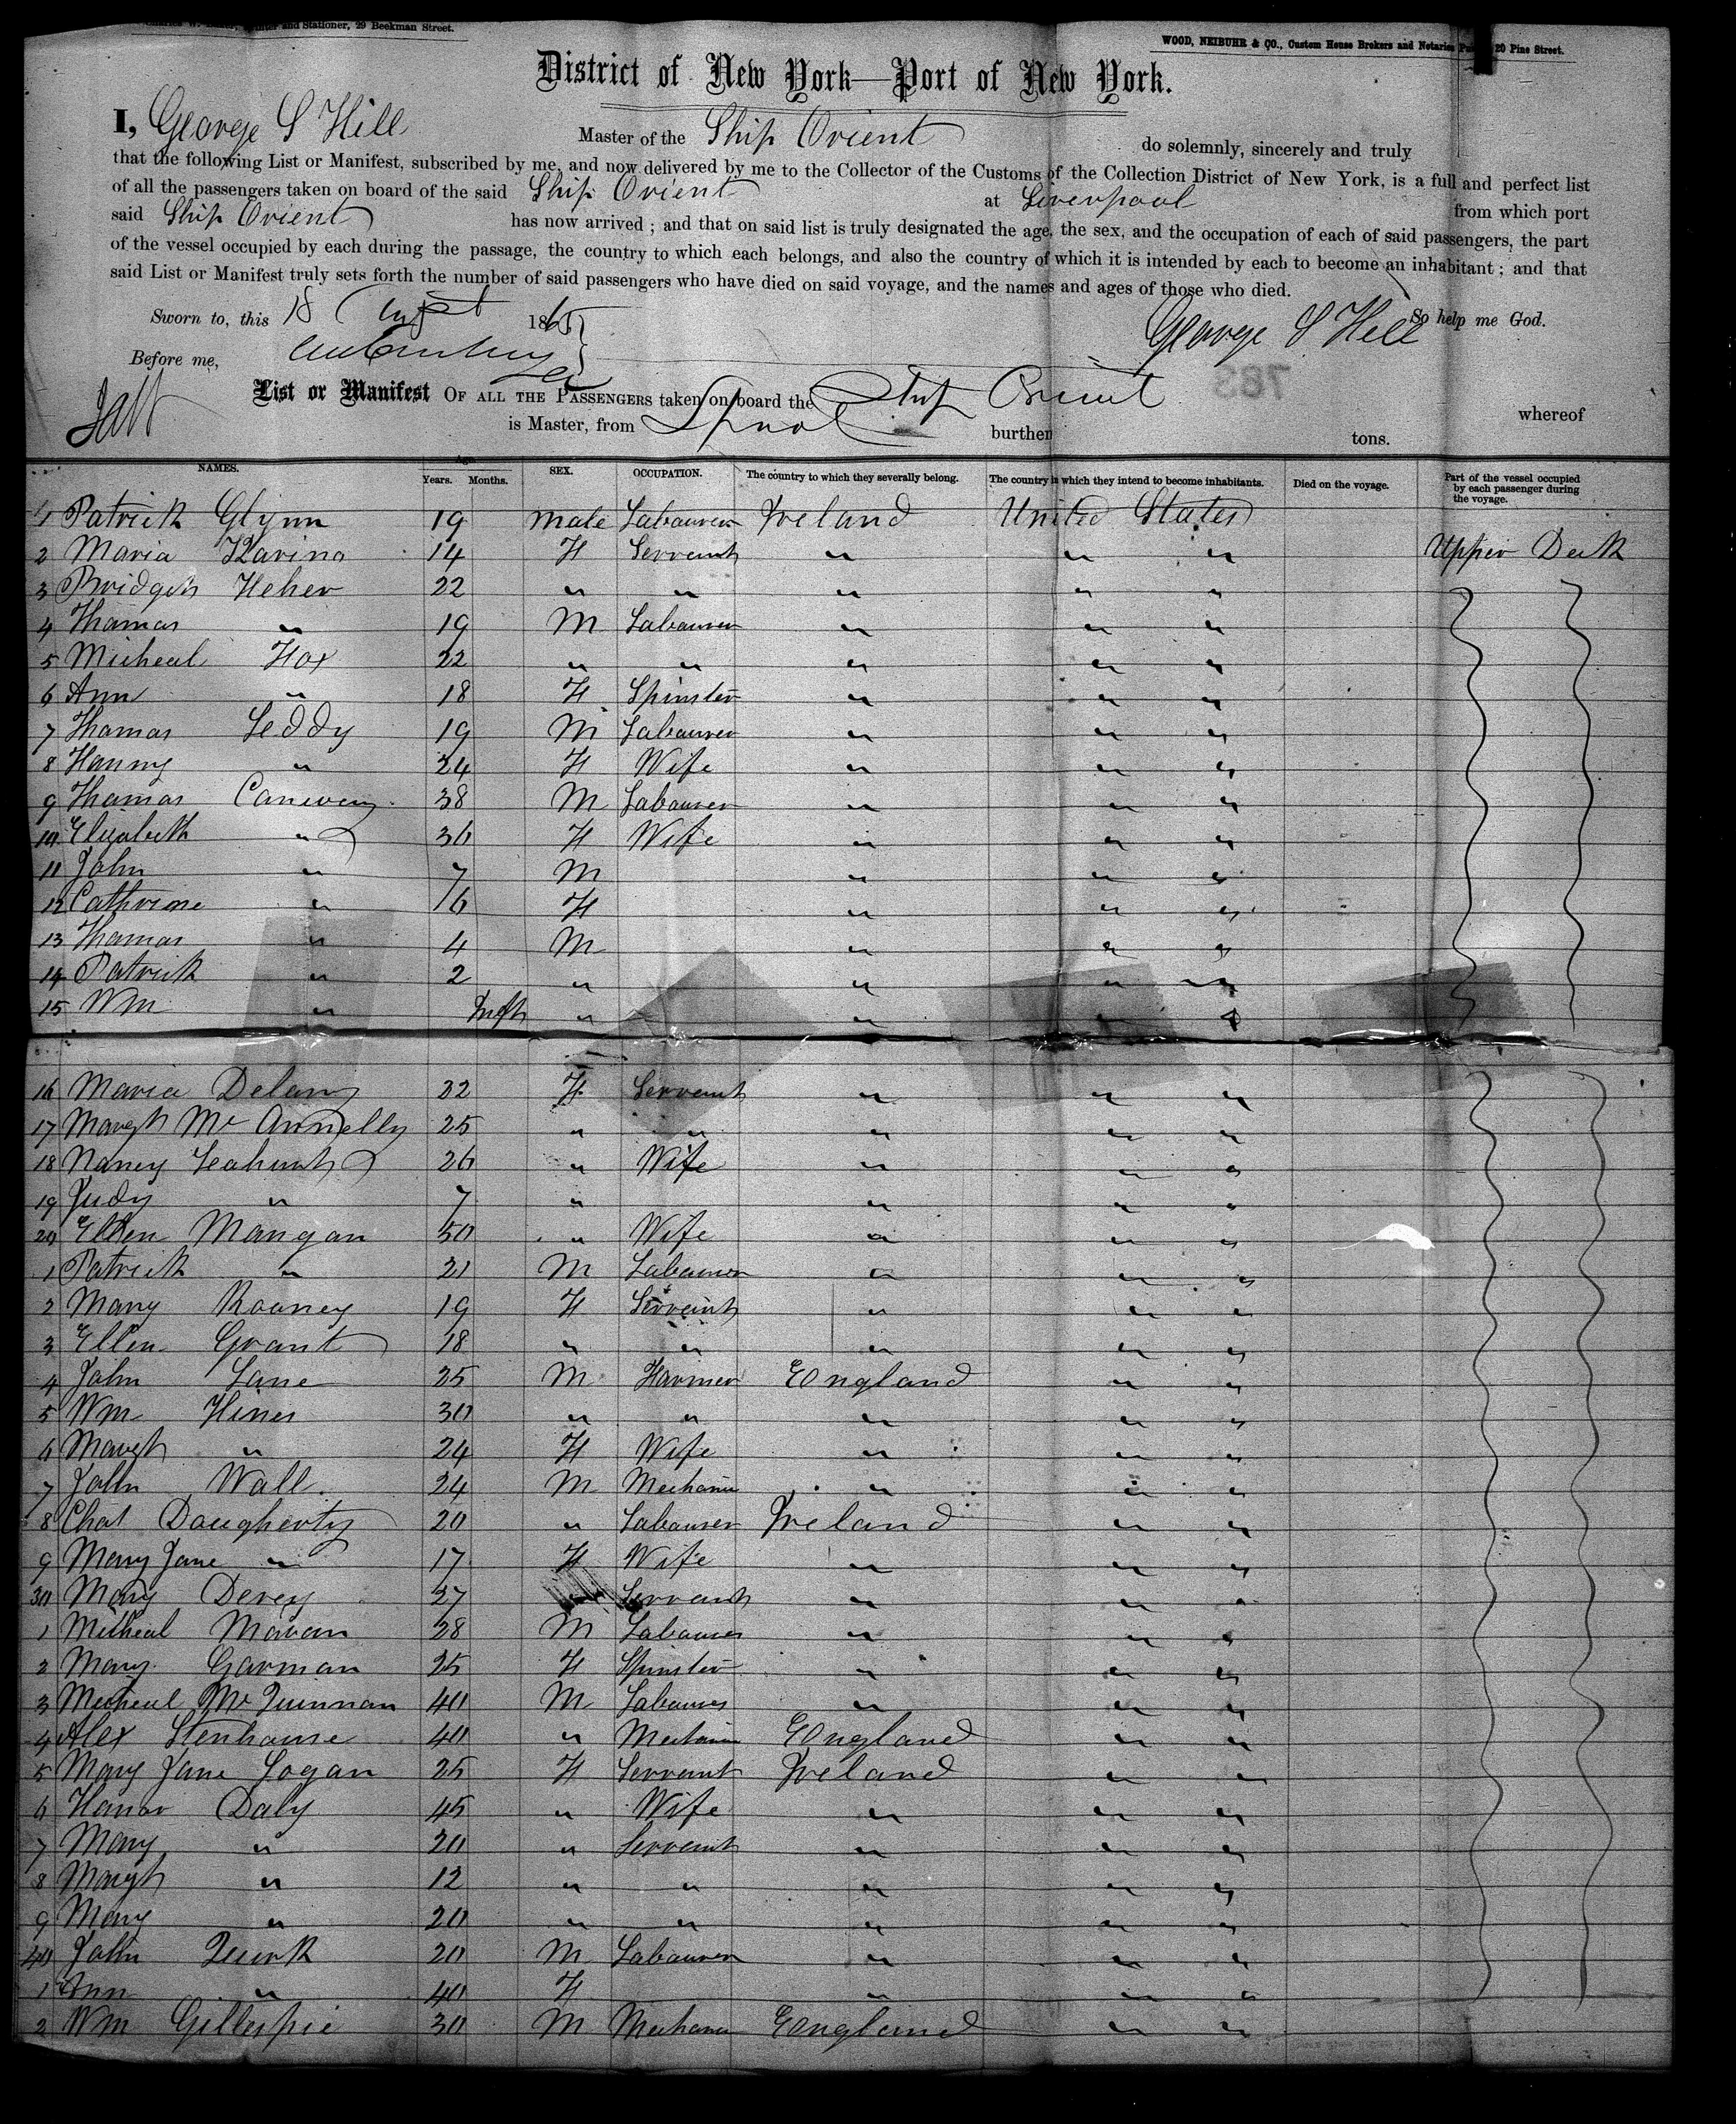 and Stationer, 29 Beekman Street.
WOOD, NEIBUHR & CO., Custom House Brokers and Notaries 20 Pine Street.
District of New York—Port of New York.
I, George S Hill Master of the Ship Orient do solemnly, sincerely and truly
that the following List or Manifest, subscribed by me, and now delivered by me to the Collector of the Customs of the Collection District of New York, is a full and perfect list
of all the passengers taken on board of the said Ship Orient at Liverpool from which port
said Ship Orient has now arrived ; and that on said list is truly designated the age, the sex, and the occupation of each of said passengers, the part
of the vessel occupied by each during the passage, the country to which each belongs, and also the country of which it is intended by each to become an inhabitant ; and that
said List or Manifest truly sets forth the number of said passengers who have died on said voyage, and the names and ages of those who died.
Sworn to, this 18 1865 So help me God.
George S Hill
Before me,
783
List or Manifest OF ALL THE PASSENGERS taken on board the Ship Orient whereof
is Master, from Lpool burthen tons.
NAMES. Age. Years. Months. SEX. OCCUPATION. The country to which they severally belong. The country in which they intend to become inhabitants. Died on the voyage. Part of the vessel occupied by each passenger during the voyage.
1 Patrick Glynn 19 male Labourer Ireland United States
2 Maria 14 F Servant " " " Upper Deck
3 Bridget Heher 22 " " " " "
4 Thomas " 19 M Labourer " " "
5 Micheal Fox 22 " " " " "
6 Ann " 18 F Spinster " " "
7 Thomas Leddy 19 M Labourer " " "
8 Hanny " 24 F Wife " " "
9 Thomas 38 M Labourer " " "
10 Elizabeth " 36 F Wife " " "
11 John " 7 M " " "
12 Cathrine " 6 F " " "
13 Thomas " 4 M " " "
14 Patrick " 2 " " " "
15 Wm " " " " "
16 Maria Delany 22 F Servant " " "
17 Margt Mc Annelly 25 " " " " "
18 Nancy 26 " Wife " " "
19 Judy " 7 " " " "
20 Ellen Mangan 50 " Wife " " "
1 Patrick " 21 M Labourer " " "
2 Mary Rooney 19 F Servant " " "
3 Ellen Grant 18 " " " " "
4 John Lane 25 M Farmer England " "
5 Wm Hines 30 " " " " "
6 Margt " 24 F Wife " " "
7 John Wall 24 M Mechanic " " "
8 Chas Daugherty 20 " Labourer Ireland " "
9 Mary Jane " 17 F Wife " " "
30 Mary Devey 27 " Servant " " "
1 Micheal Mavan 28 M Labourer " " "
2 Mary Garman 25 F Spinster " " "
3 Micheal Mc Quinnan 40 M Labourer " " "
4 Alex Stenhouse 40 " Mechanic England " "
5 Mary Jane Logan 25 F Servant Ireland " "
6 Hanor Daly 45 " Wife " " "
7 Mary " 20 " Servant " " "
8 Margt " 12 " " " " "
9 Mary " 20 " " " " "
40 John Quirk 20 M Labourer " " "
1 Ann " 40 F " " "
2 Wm Gillespie 30 M Mechanic England " "